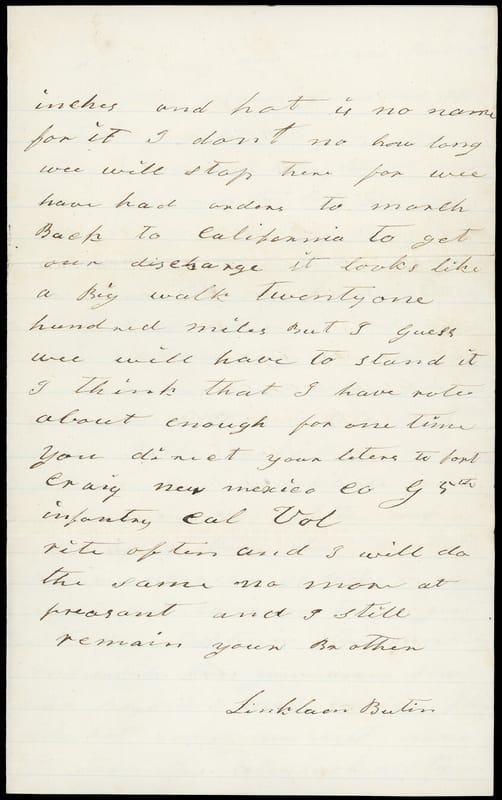 inches and hot is no name
for it I dont no how long
wee will stop here for wee
have had orders to march
Back to California to get
our discharge it looks like
a Big walk twentyone
hundred miles But I Guess
wee will have to stand it
I think that I have rote
about enough for one time
you direct your leters to fort
Craig new mexico Co G 5th
infantry Cal Vol
rite often and I will do
the same no more at
preasant and I still
remain your Brother
Linklaen Butin